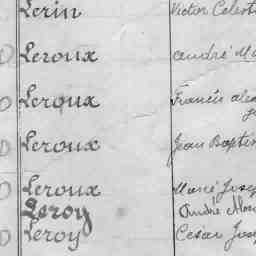 Lerin Victor Celest
Leroux André Ma
Leroux Francis Alex
Leroux Jean Baptis
Leroux Marie Josep
Leroy André Mar
Leroy César Jos